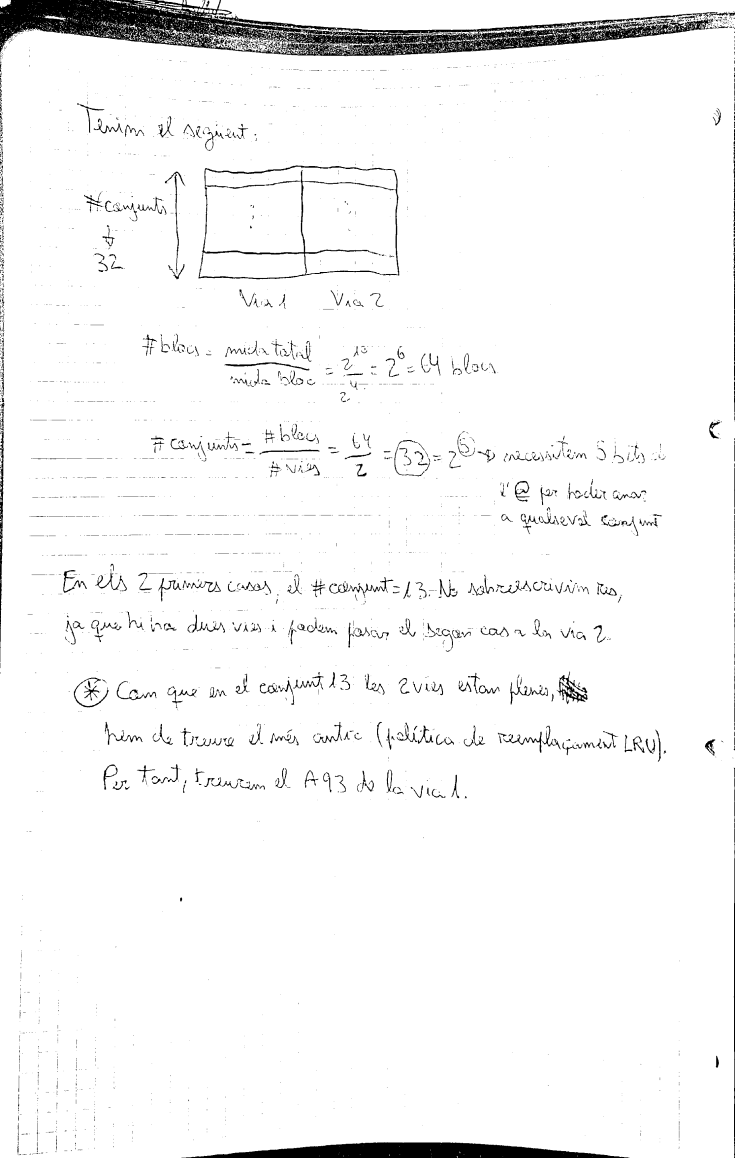 Tenim el següent:
#conjunts
↓
32
Via 1 Via 2
#blocs = mida total / mida bloc = 2^10 / 2^4 = 2^6 = 64 blocs
#conjunts = #blocs / #vies = 64 / 2 = 32 = 2^5 → necessitem 5 bits de
l'@ per poder anar
a qualsevol conjunt
En els 2 primers casos, el #conjunt = 13. No sobreescrivim res,
ja que hi ha dues vies i podem posar el segon cas a la via 2.
* Com que en el conjunt 13 les 2 vies estan plenes,
hem de treure el més antic (política de reemplaçament LRU).
Per tant, treurem el A93 de la via 1.